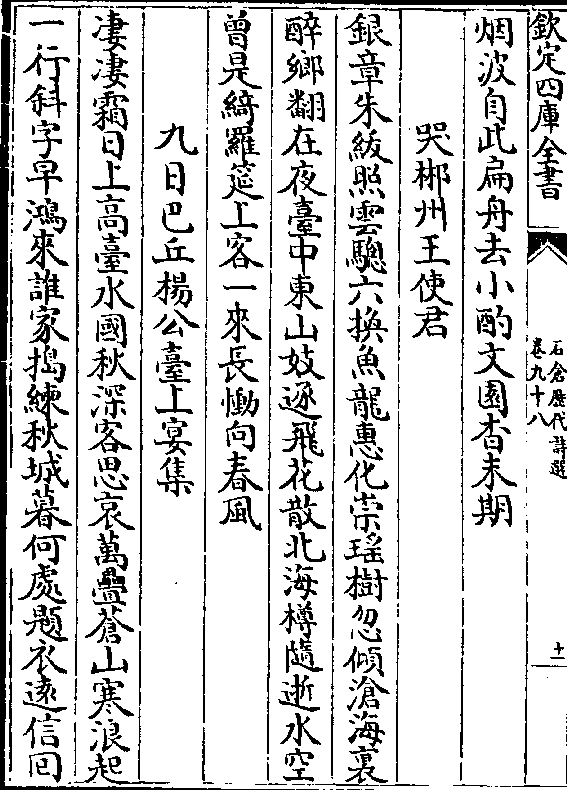 欽定四庫全書
石倉歷代詩選
卷九十八
十一
烟波自此扁舟去小酌文園杳未期
哭郴州王使君
銀章朱紱照雲驄六換魚龍惠化崇瑶樹忽傾滄海裏
醉鄉翻在夜臺中東山妓逐飛花散北海樽隨逝水空
曾是綺羅筵上客一來長慟向春風
九日巴丘楊公臺上宴集
凄凄霜日上高臺水國秋深客思哀萬疊蒼山寒浪起
一行斜字早鴻來誰家搗練秋城暮何處題衣遠信回